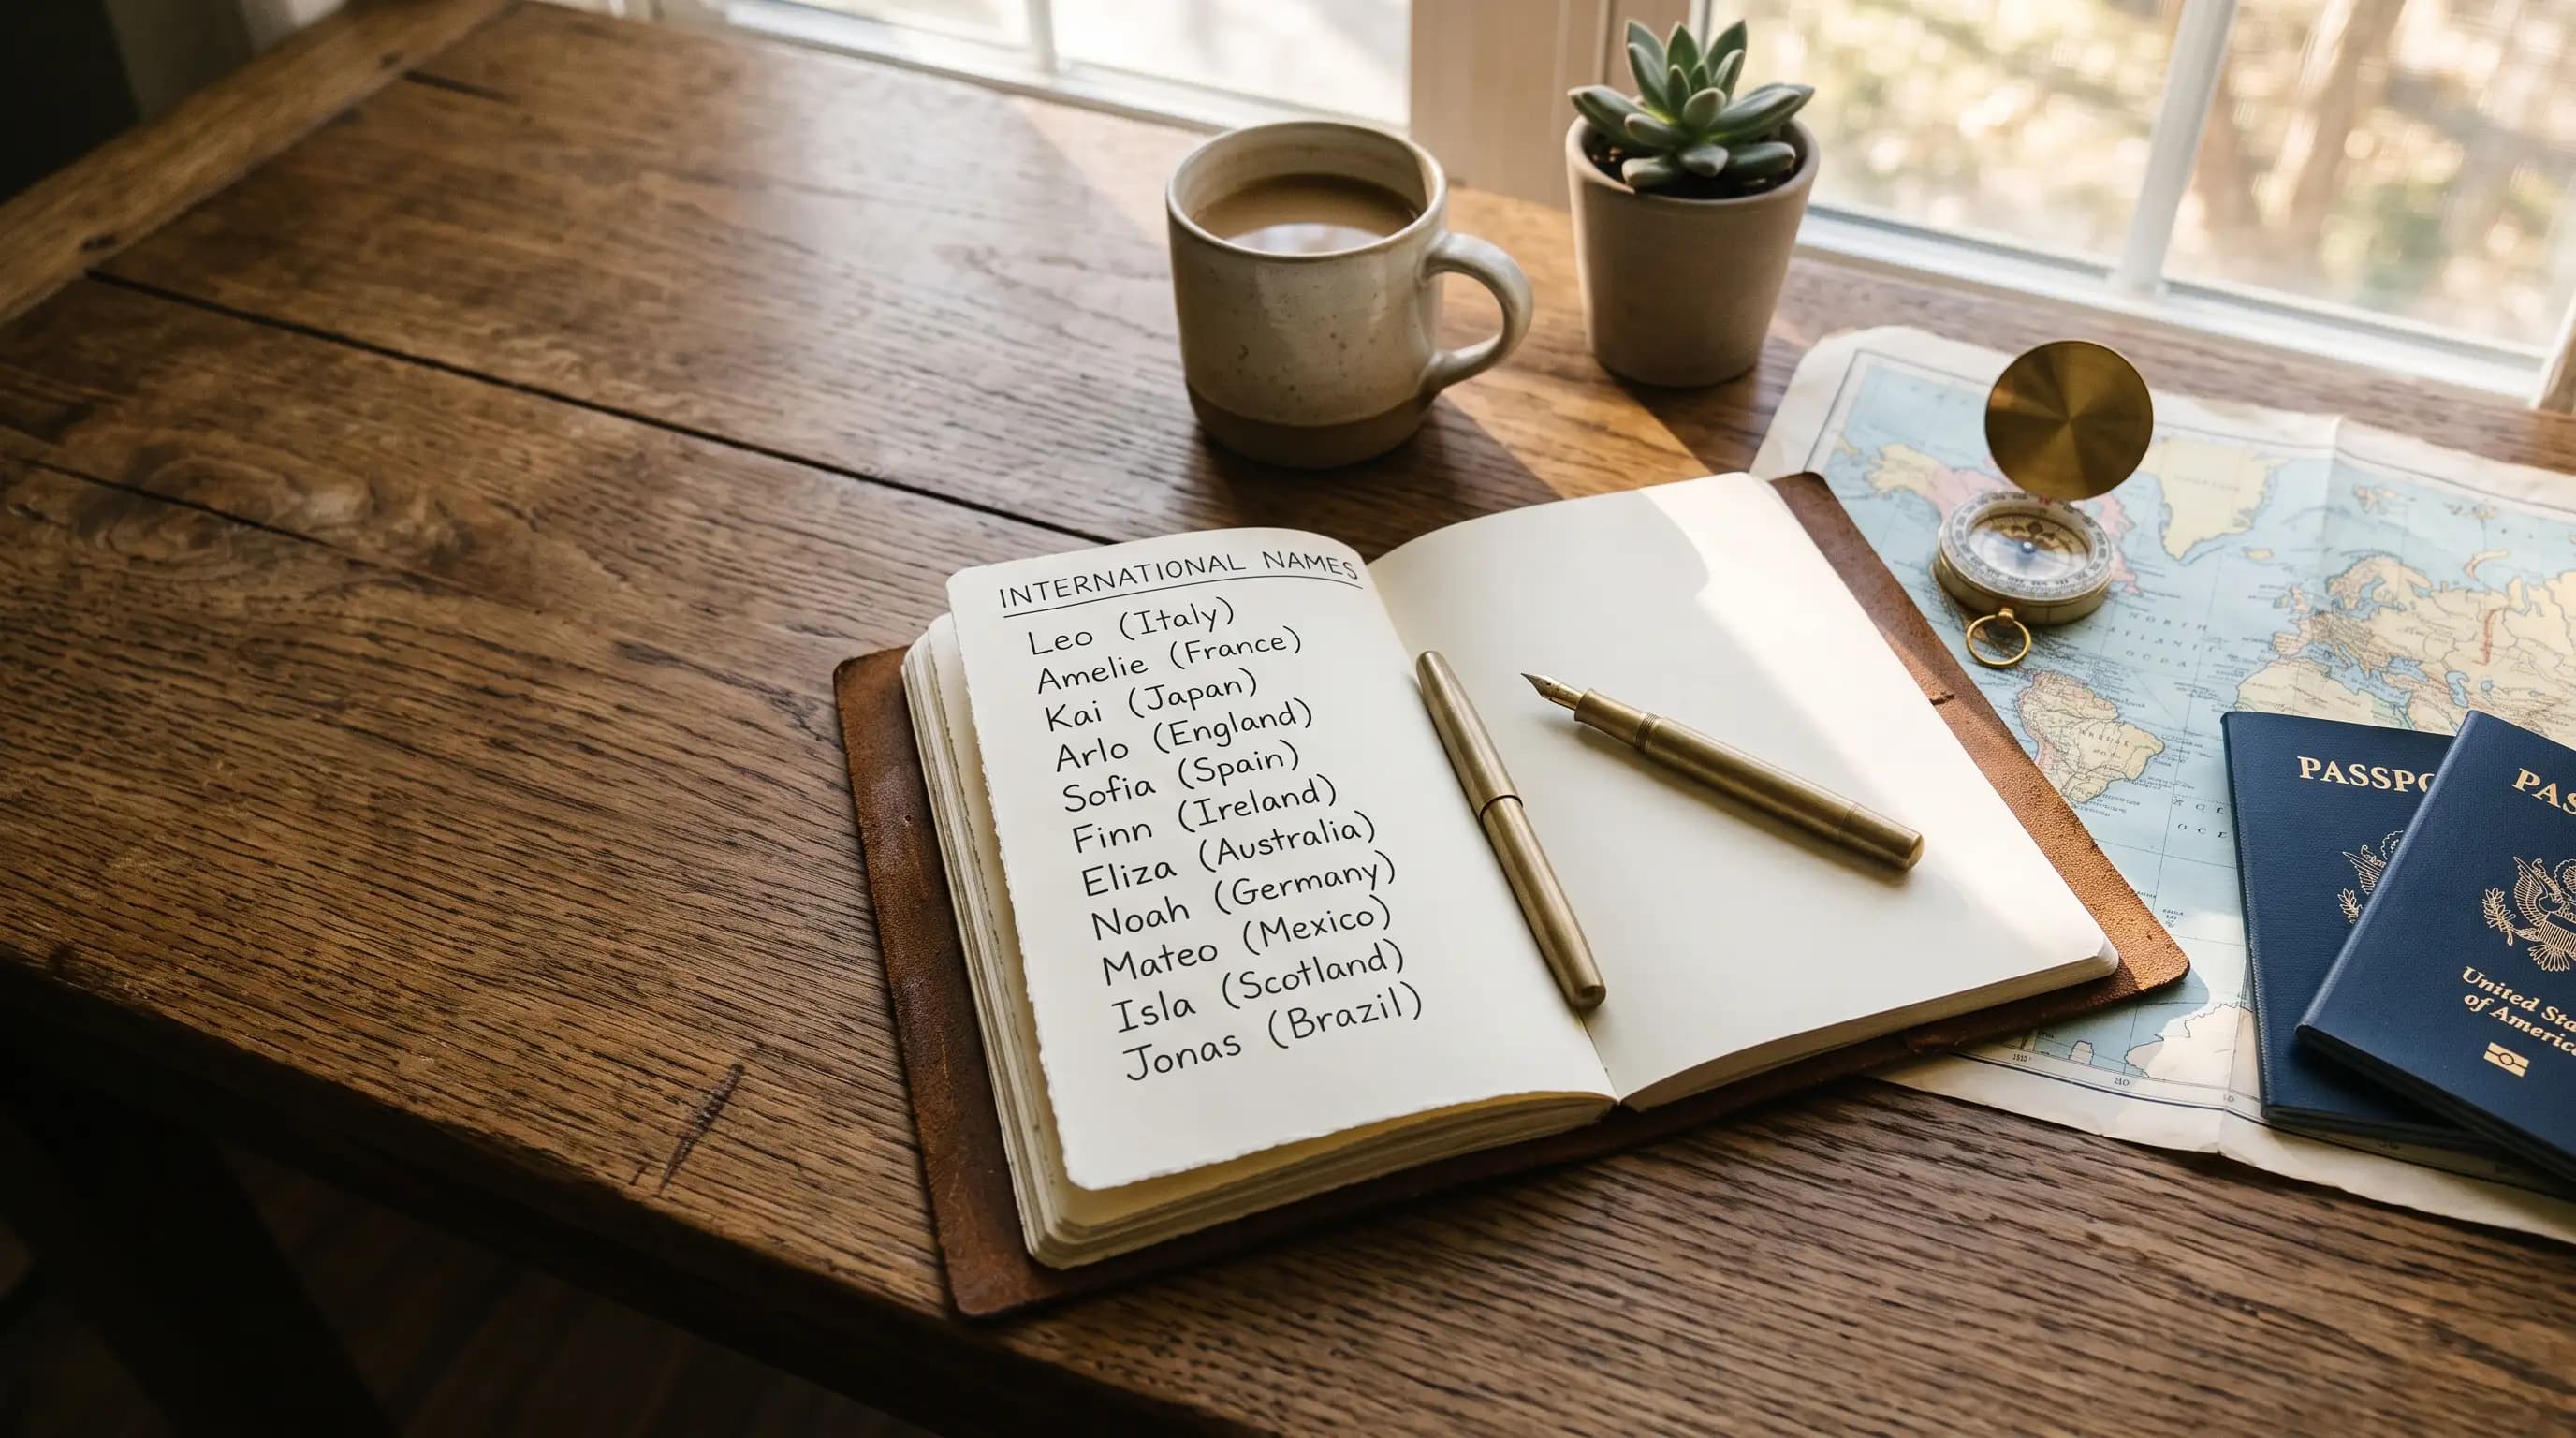 INTERNATIONAL NAMES
Leo (Italy)
Amelie (France)
Kai (Japan)
Arlo (England)
Sofia (Spain)
Finn (Ireland)
Eliza (Australia)
Noah (Germany)
Mateo (Mexico)
Isla (Scotland)
Jonas (Brazil)
NORTH
ATLANTIC
PASSPO
PAS
United Sta
of Americ